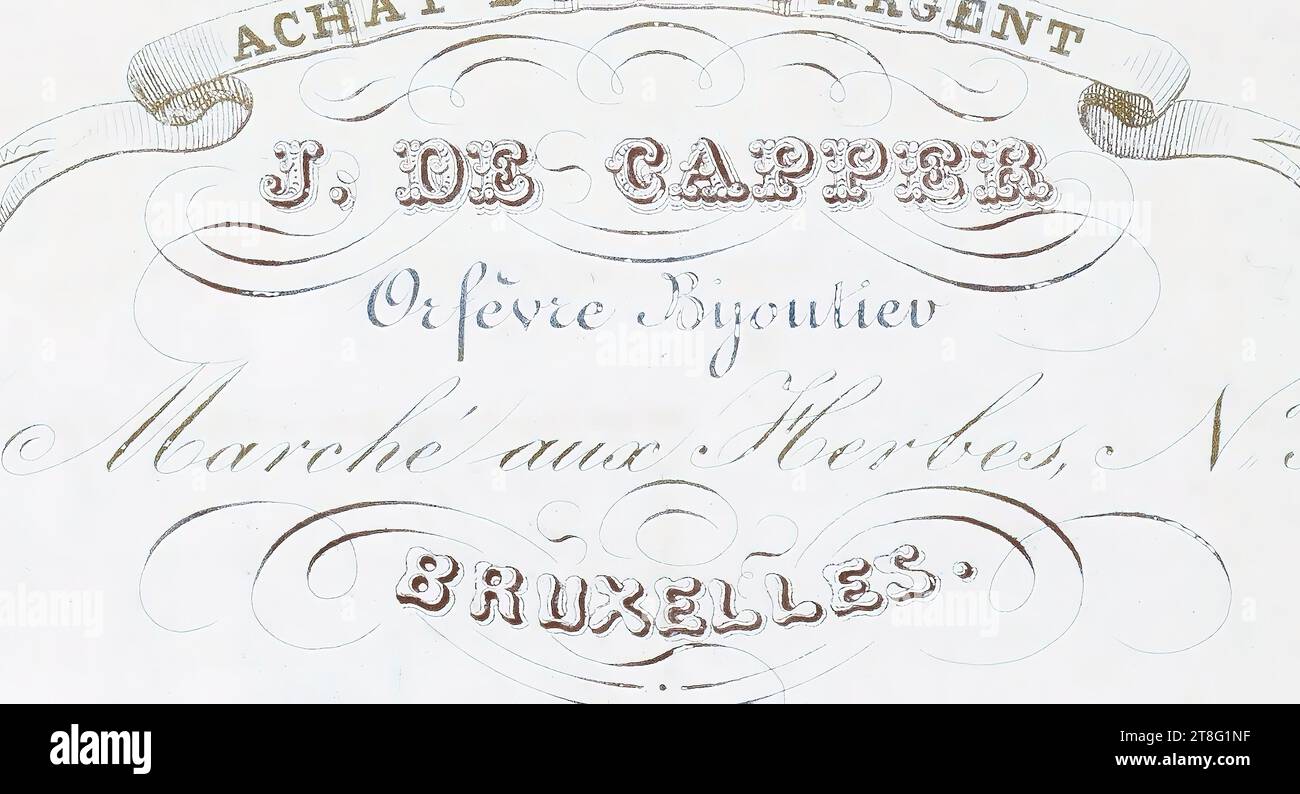 ACHAT D ARGENT
J. DE CAPPER
Orfèvre Bijoutier
Marché aux Herbes, N.
BRUXELLES.
alamy
Image ID: 2T8G1NF
www.alamy.com